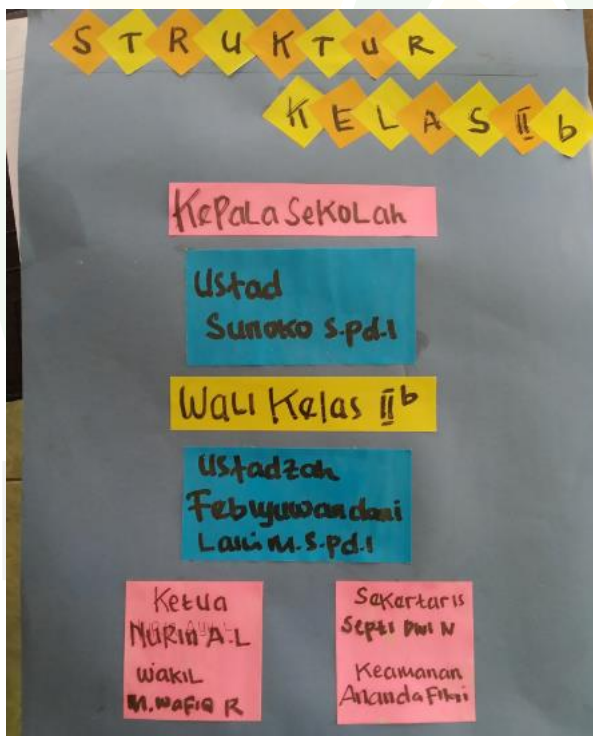 STRUKTUR
KELAS II b
KePaLa SeKoLah
Ustad
Sunoko S.pd.I
WaLi Kelas II b
Ustadzah
Febiyuwandani
M. S.pd.I
Ketua
NURin A.L
WakiL
M.Wafiq R
Sekertaris
Septi Dwi N
Keamanan
Ananda Fikri